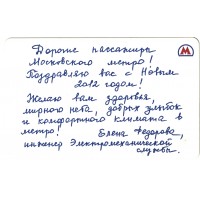 Дорогие пассажиры
Московского метро!
Поздравляю вас с Новым
2012 годом!
Желаю вам здоровья,
мирного неба, добрых улыбок
и комфортного климата в
метро!
Елена Федорова,
инженер Электромеханической
службы.
М